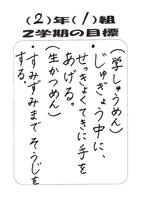 (2)年(1)組
2学期の目標
(学しゅうめん)
・じゅぎょう中に、
せっきょくてきに手を
あげる。
(生かつめん)
・すみずみまでそうじを
する。